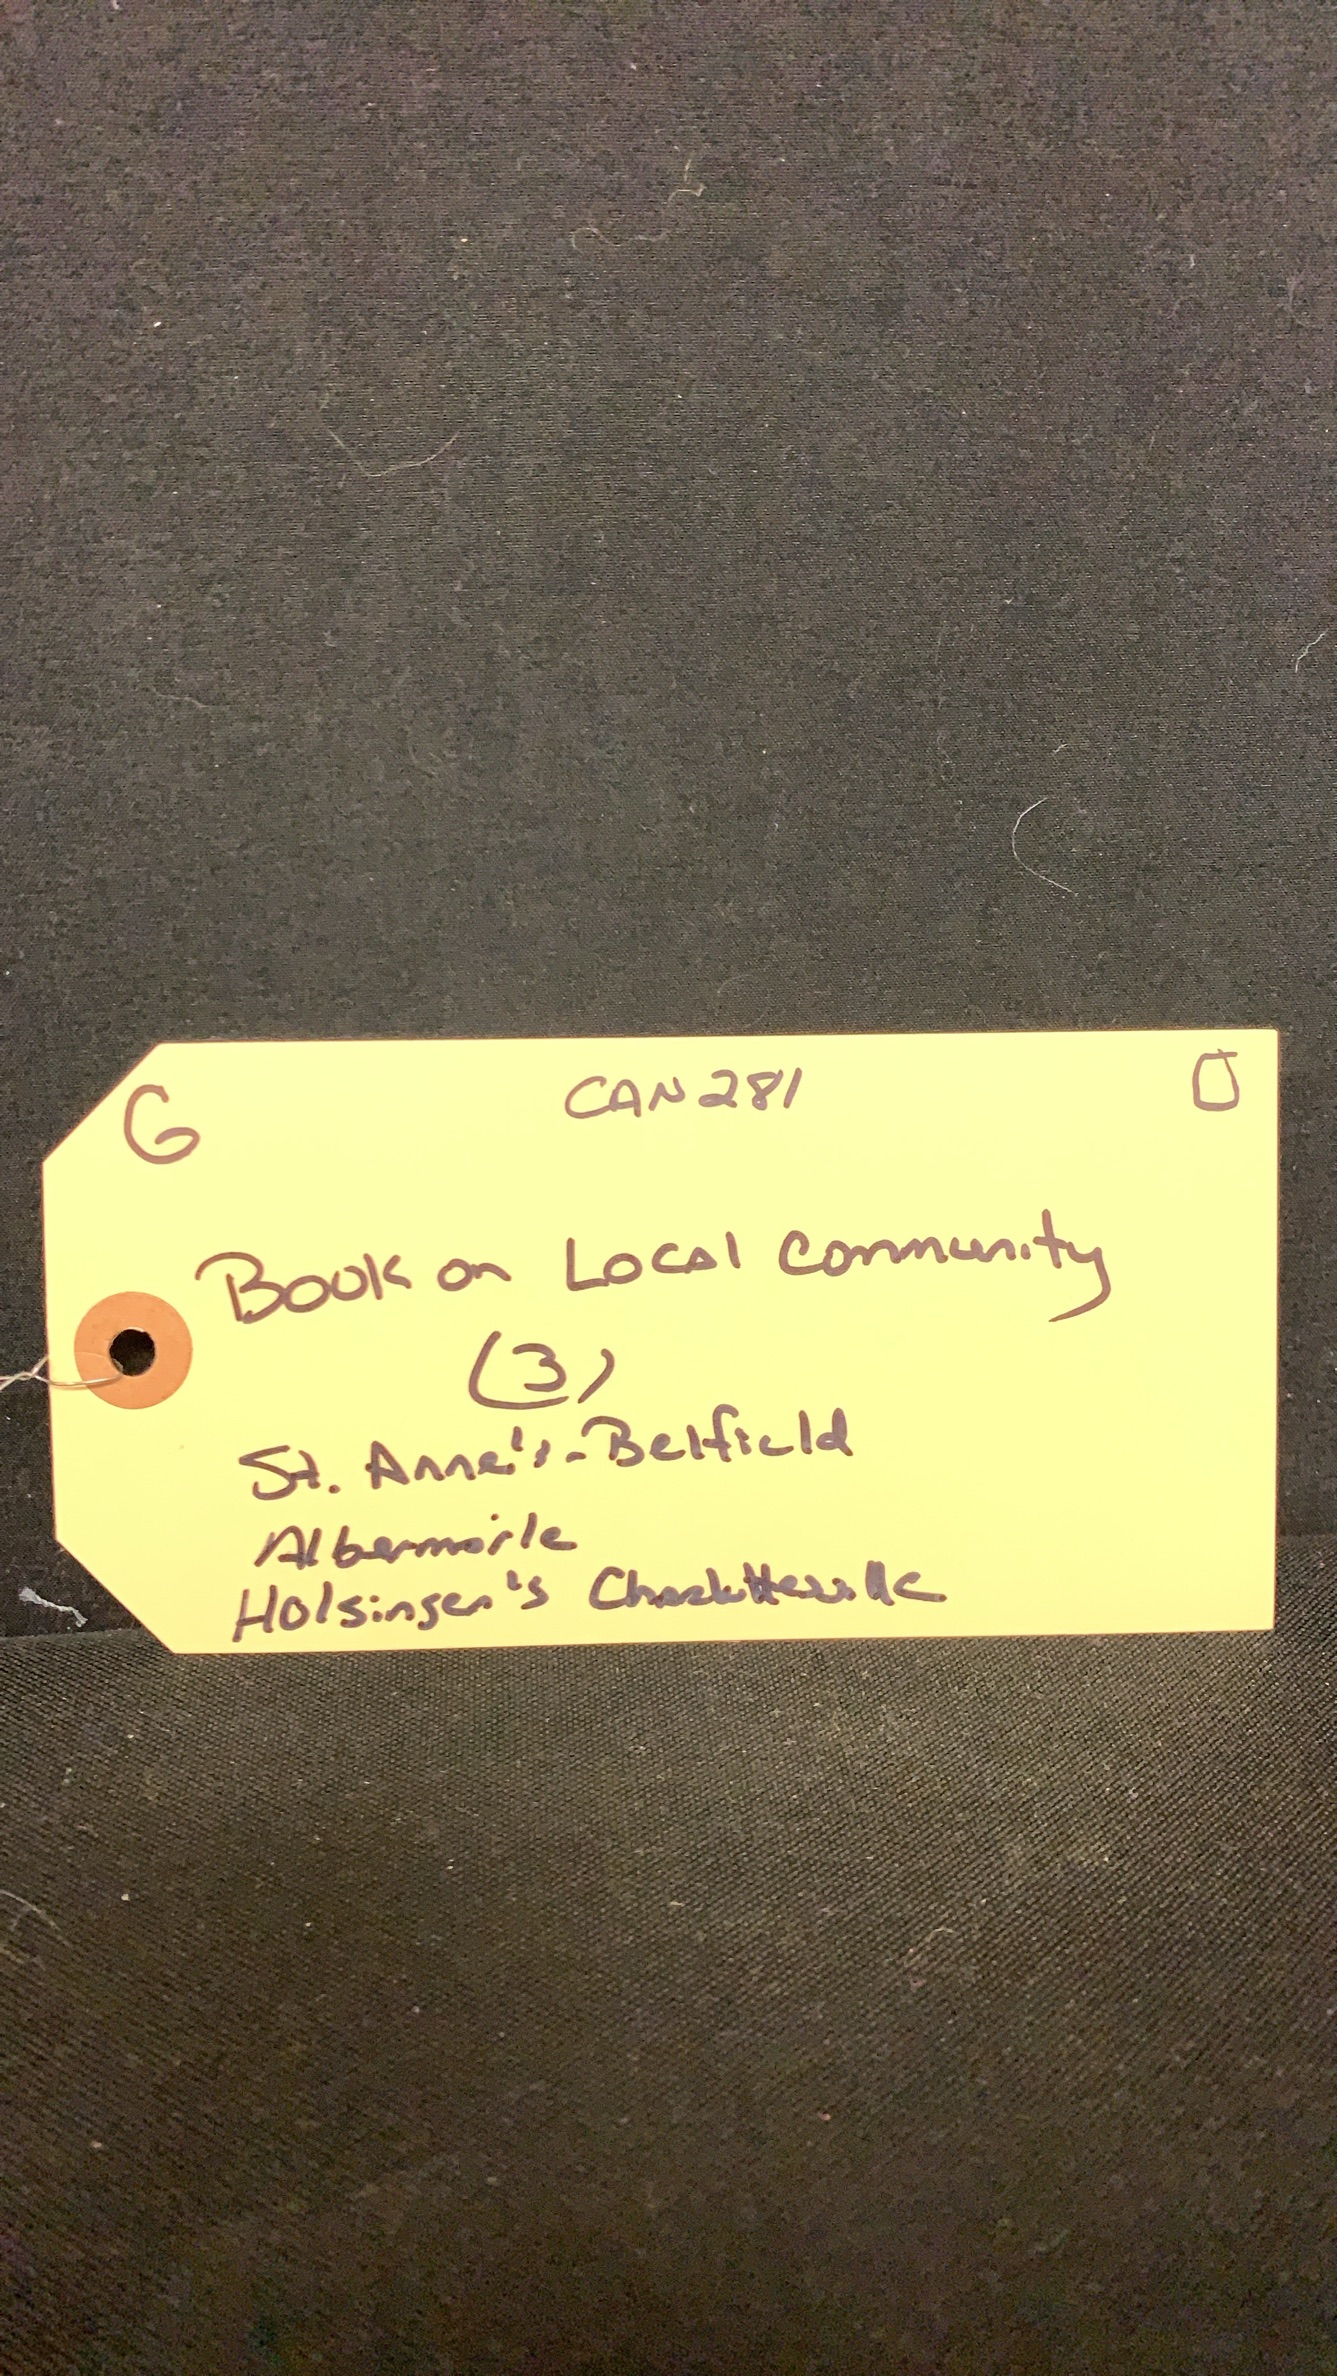 G CAN281 O
Book on Local Community
(3)
St. Anne's-Belfield
Albermarle
Holsinger's Charlottesville